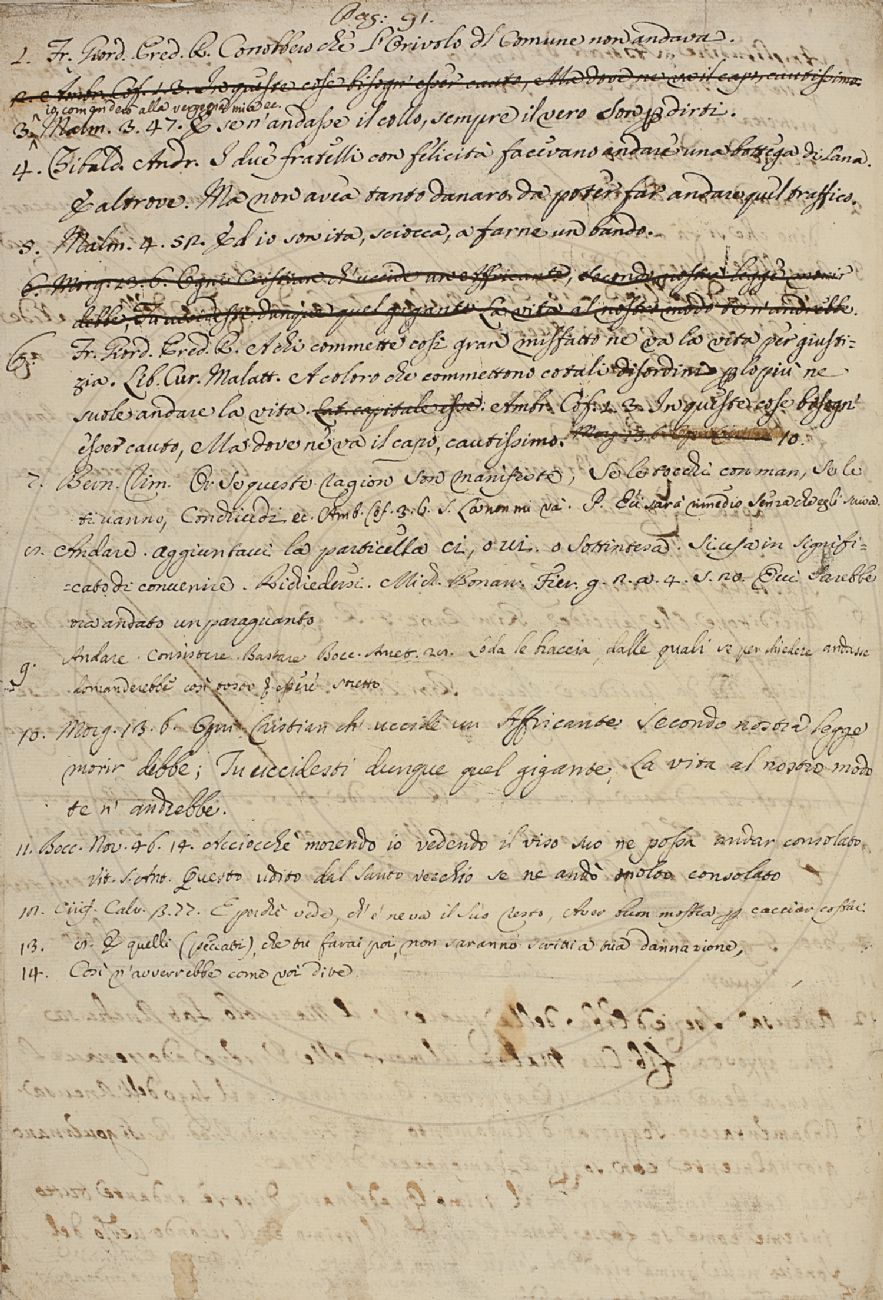 Pag: 91.
1. Fr. Giord. Pred. R. Conobbero che l'Orivolo del Comune non andava.
2. Ambr. Cof. 1. 3. In queste cose bisogn' esser cauto, Ma dove ne va il capo, cautissimo.
io comandero alla
3. Malm. 3. 47. E se n'andasse il collo, sempre il vero Son p dirti.
4. Tibald. Andr. I due fratelli con felicità facevano andare una bottega di lana.
E altrove. Ma non avea tanto danaro da poter far andare quel traffico.
5. Malm. 4. 52. Ed io son ita, sciocca, a farne un bando.
6. Morg. 13. 6. Ogni Cristian ch'uccide un Affricante, secondo nostra legge morir
debbe; Tu uccidesti dunque quel gigante La vita al nostro modo te n'andrebbe.
6. Fr. Giord. Pred. R. A chi commette così gran misfatto ne va la vita per giusti-
zia. Lib. Cur. Malatt. A coloro che commettono cotali disordini p lo più ne
suole andare la vita. Lat. capitale esse. Ambr. Cof. 1. 3. In queste cose bisogn'
esser cauto, Ma dove ne va il capo, cautissimo. Morg. 13. 6. 10.
7. Bern. Rim. Or se queste ragion son manifeste, Se le tocchi con man, se le
ti vanno, Conchiudi ec. Amb. Cof. 3. 6. S. La non mi va. P. Ecci sarà rimedio senza che egli
8. Andare. aggiuntavi la particella ci, o vi. o sottintesa. Si usa in signifi-
cato di convenire. Richiedersi. Mich. Bonarr. Fier. g. 2. a. 4. s. 20. Ecci sarebbe
andato un paraguanto
9. Andare. Consistere. Bastare Bocc. Amet. 21. Loda le braccia, dalle quali se per chiedere andasse
domanderebbe così tosto d essere stretto
10. Morg. 13. 6. Ogni Cristian ch uccide un Affricante secondo nostra legge
morir debbe; Tu uccidesti dunque quel gigante, La vita al nostro modo
te n' andrebbe.
11. Bocc. Nov. 46. 14. Acciocchè morendo io vedendo il viso suo ne possa andar consolato
Vit. S. Ant. Questo udito dal Santo vecchio se ne andò molto consolato
12. Ciriff. Calv. 3. 77. E poichè vede, ch' e' ne va il suo resto, Aver buon mostra p cacciar costui.
13. E quelli (peccati), che tu farai poi, non saranno scritti a tua dannazione,
14. Così n'avverrebbe come voi dite